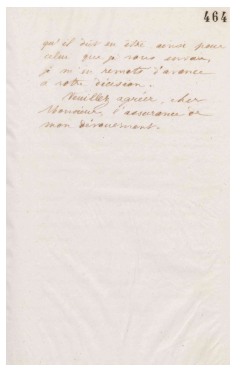 464
qu'il doit en être ainsi pour
celui que je vous envoie,
je m'en remets d'avance
à votre décision.
Veuillez agréer, cher
Monsieur, l'assurance de
mon dévouement.